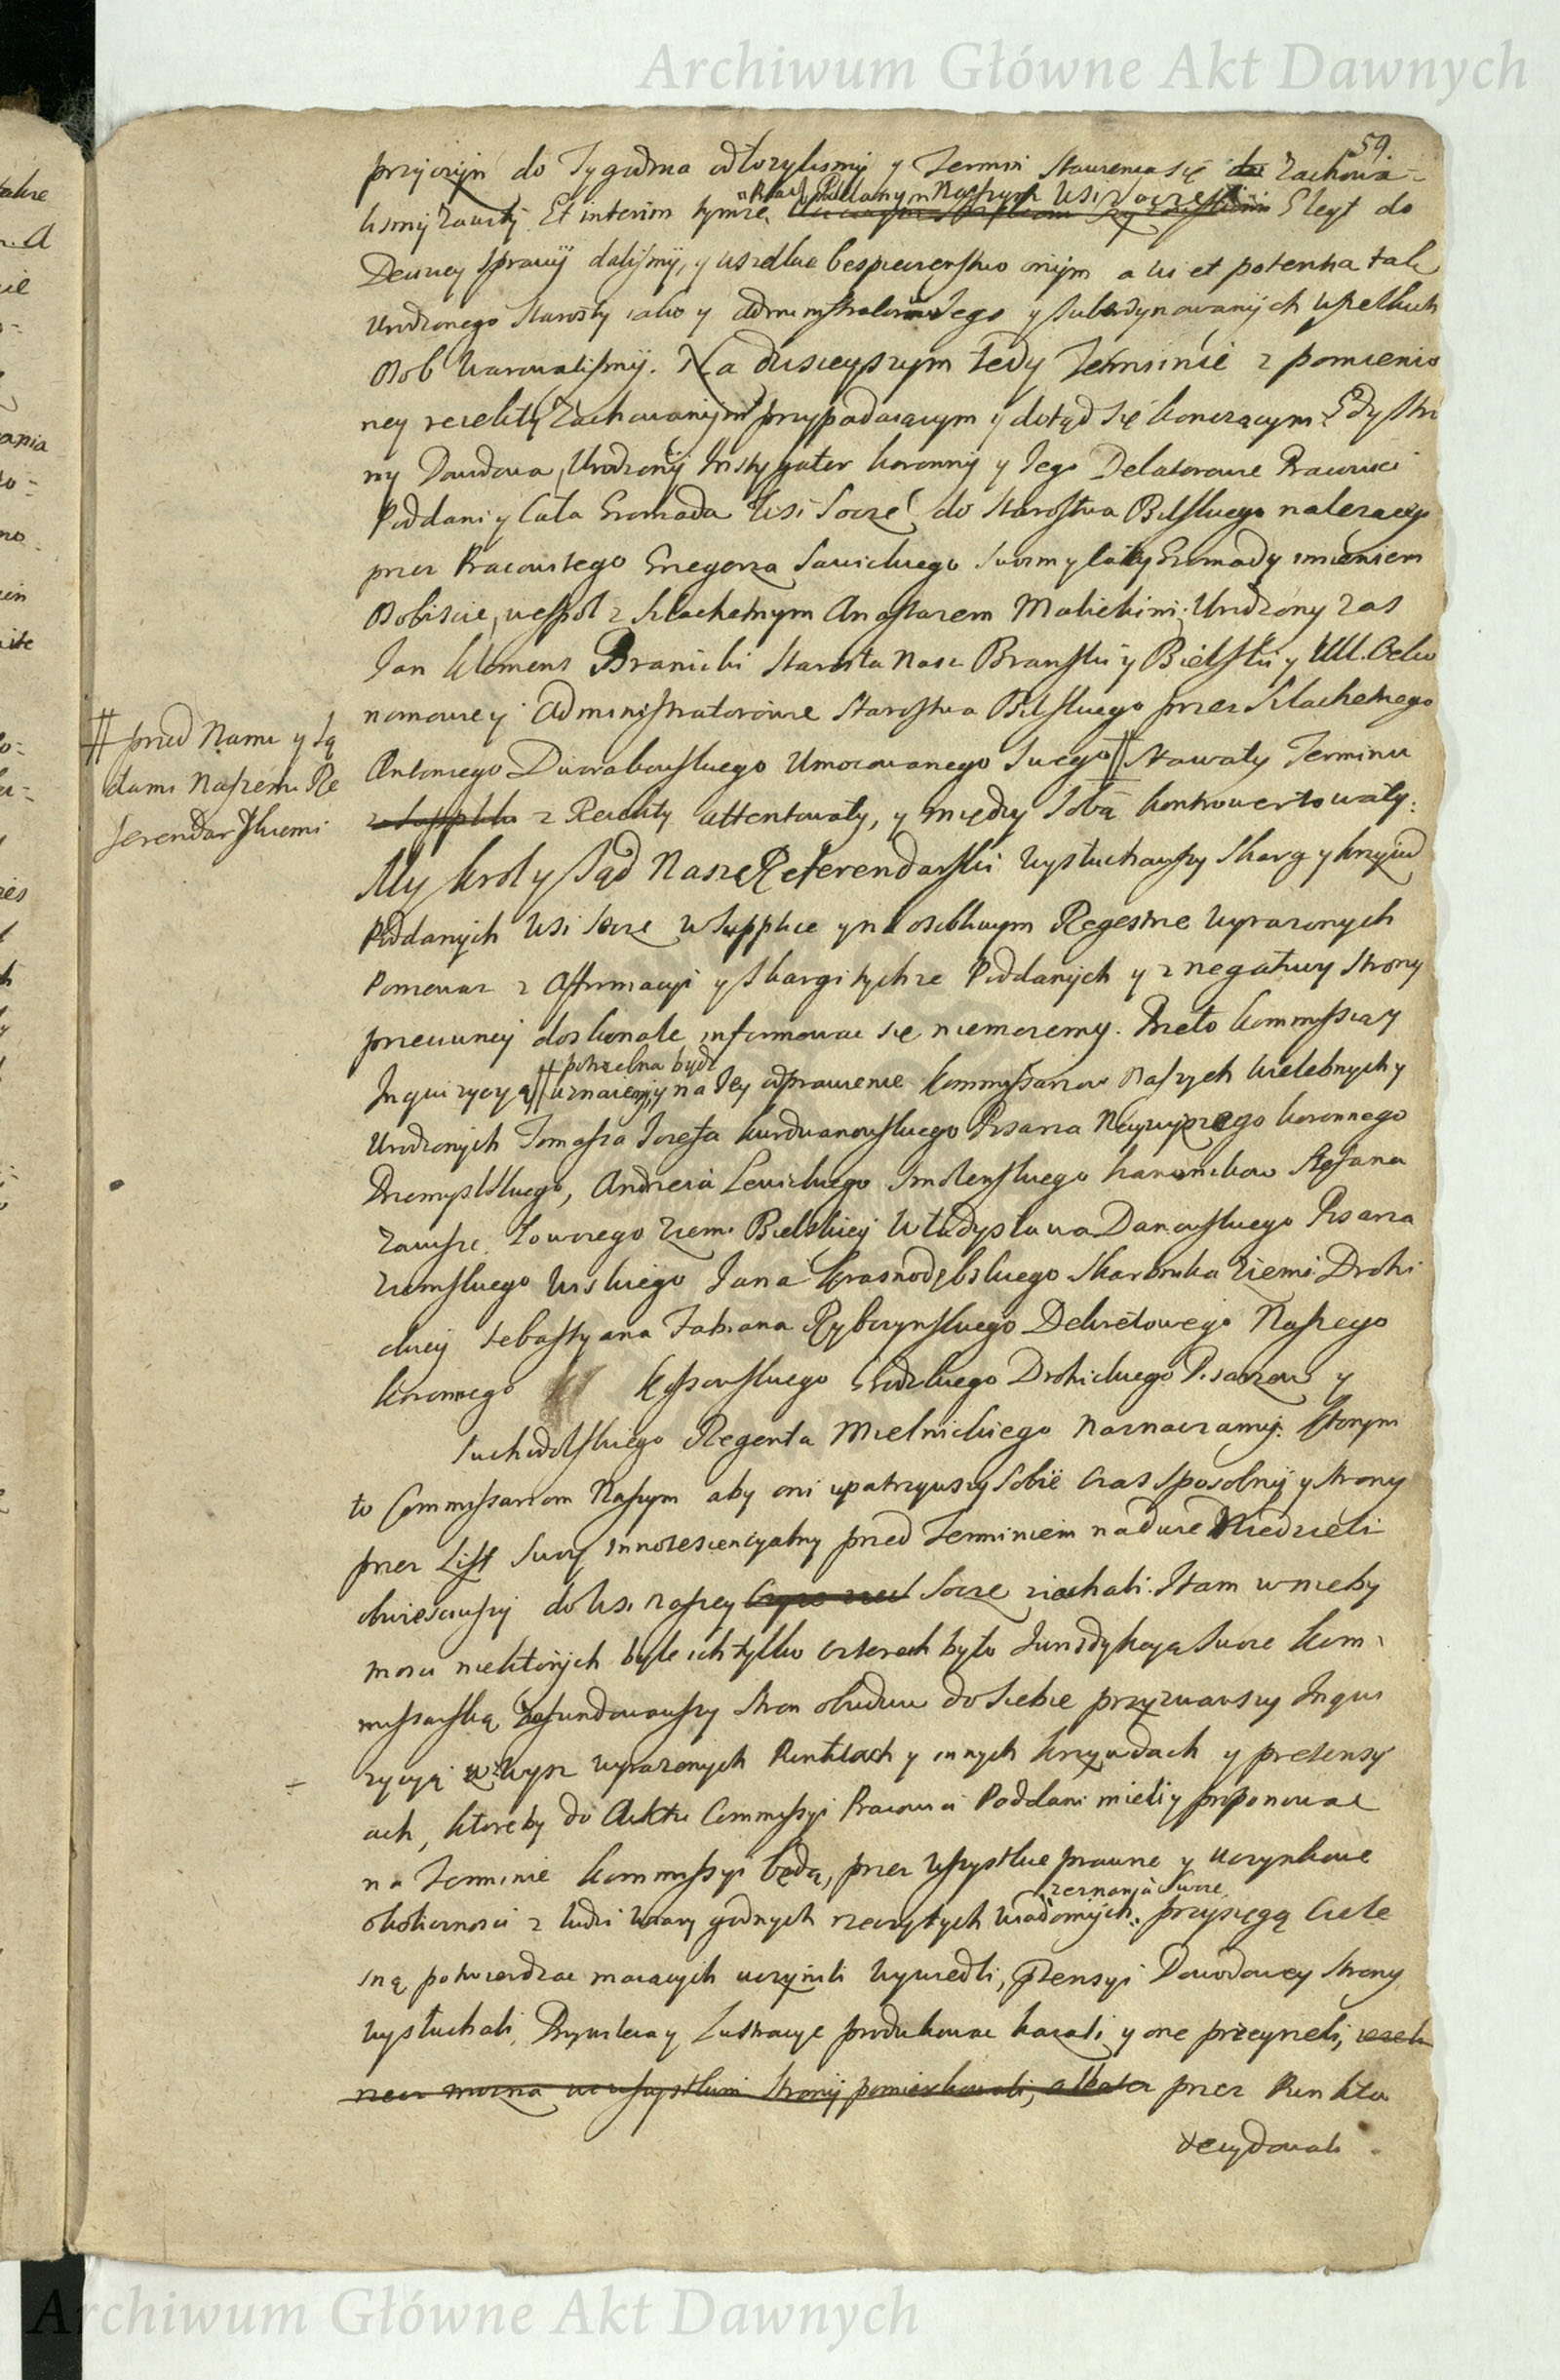 Archiwum Główne Akt Dawnych
59
przyczyn do Tygodnia odłozylismy y Termin stawienia się do Zachowa-
lismy zawity. Et interim tymze Prac: Poddanym Naszym wsi Socze Gleyt do
Dewney sprawy dalismy, y wszelkie bespieczenstwo onym a vi et potentia tak
Urodzonego Starosty iako y Administratorow Jego y subordynowanych wszelkich
Osob warowalismy. Na dzisieyszym tedy Terminie z pomienio
ney recelty Zachowanym przypadaiącym y dotąd się konczącym Gdy stro
ny Dowdowa, Urodzony Instygator koronny y Jego Delatorowie Pracowici
Poddani y Cała Gromada Wsi Socze do Starostwa Bilskiego nalezącey
przez Pracowitego Grzegorza Sawickiego swoim y całey Gromady imieniem
Osobiscie, wespoł z Szlachetnym Anastazem Malickim; Urodzony zas
Jan Klemens Branicki Starosta Nasz Branski y Bielski y Ull. Oeko
nomowie y Administratorowie Starostwa Bilskiego przez Szlachetnego
Antoniego Dworakowskiego Umocowanego swego # stawały Terminu
# przed Nami y Są
dami Naszemi Re
ferendarskiemi
z Supplik z Recelty attentowały, y między sobą kontrowertowały:
My Krol y Sąd Nasz Referendarski wysłuchawszy Skarg y krzywd
Poddanych wsi Socze w Supplice y na osobliwym Regestrze wyrazonych
Poniewaz z Affirmacyi y skargi tychze Poddanych y z negatiwy strony
przeciwney doskonale informowac się niemozemy. Przeto Kommissią y
Inquizycyą # potrzebna bydz uznaiemy, y na Jey odprawienie Kommissarzow Naszych Wielebnych y
Urodzonych Tomasza Jozefa Kurdwanowskiego Pisarza Naywyzszego koronnego
Przemyslskiego, Andrzeia Lewickiego Smolenskiego kanonikow Stefana
Zawisze Łowczego Ziemi Bielskiey Władysława Danowskiego Pisarza
Ziemskiego Wiskiego Jana Krasnodębskiego Skarbnika Ziemi Drohi
ckiey Sebastyana Fabiana Rybczynskiego Dekretowego Naszego
koronnego Kossowskiego Grodzkiego Drohickiego Pisarzow y
Suchodolskiego Regenta Mielnickiego Naznaczamy. ktorym
to Commissarzom Naszym aby oni upatrzywszy sobie czas sposobny y strony
przez List swoy innotescencyalny przed Terminem na dwie Niedzieli
obwiesciwszy do wsi naszey Socze ziechali. I tam w nieby
tnosci niektorych byle ich tylko czterech było Jurisdykcyą swoie kom-
missarską zafundowawszy stron obudwu do siebie przyzwawszy Inqui
zycyą z wysz wyrazonych Punktach y innych krzywdach y pretensy
ach, ktoreby do Aktu Commissyi Pracowici Poddani mieli y proponowac
na Terminie kommissyi będą, przez wszystkie prawne y uczynkowe
okolicznosci z ludzi wiary godnych rzeczytych wiadomych, zeznania swoie przysięgą Ciele
sną potwierdzac maiących uczynili wywiedli, Pretensyi Dowodowey strony
wysłuchali, Przywileia y Lustracye produkowac kazali y one przeyrzeli, wzele
niem mozna we wszystkim strony pomiarkowali, albo tez przez Punkta
decydowali
Archiwum Główne Akt Dawnych